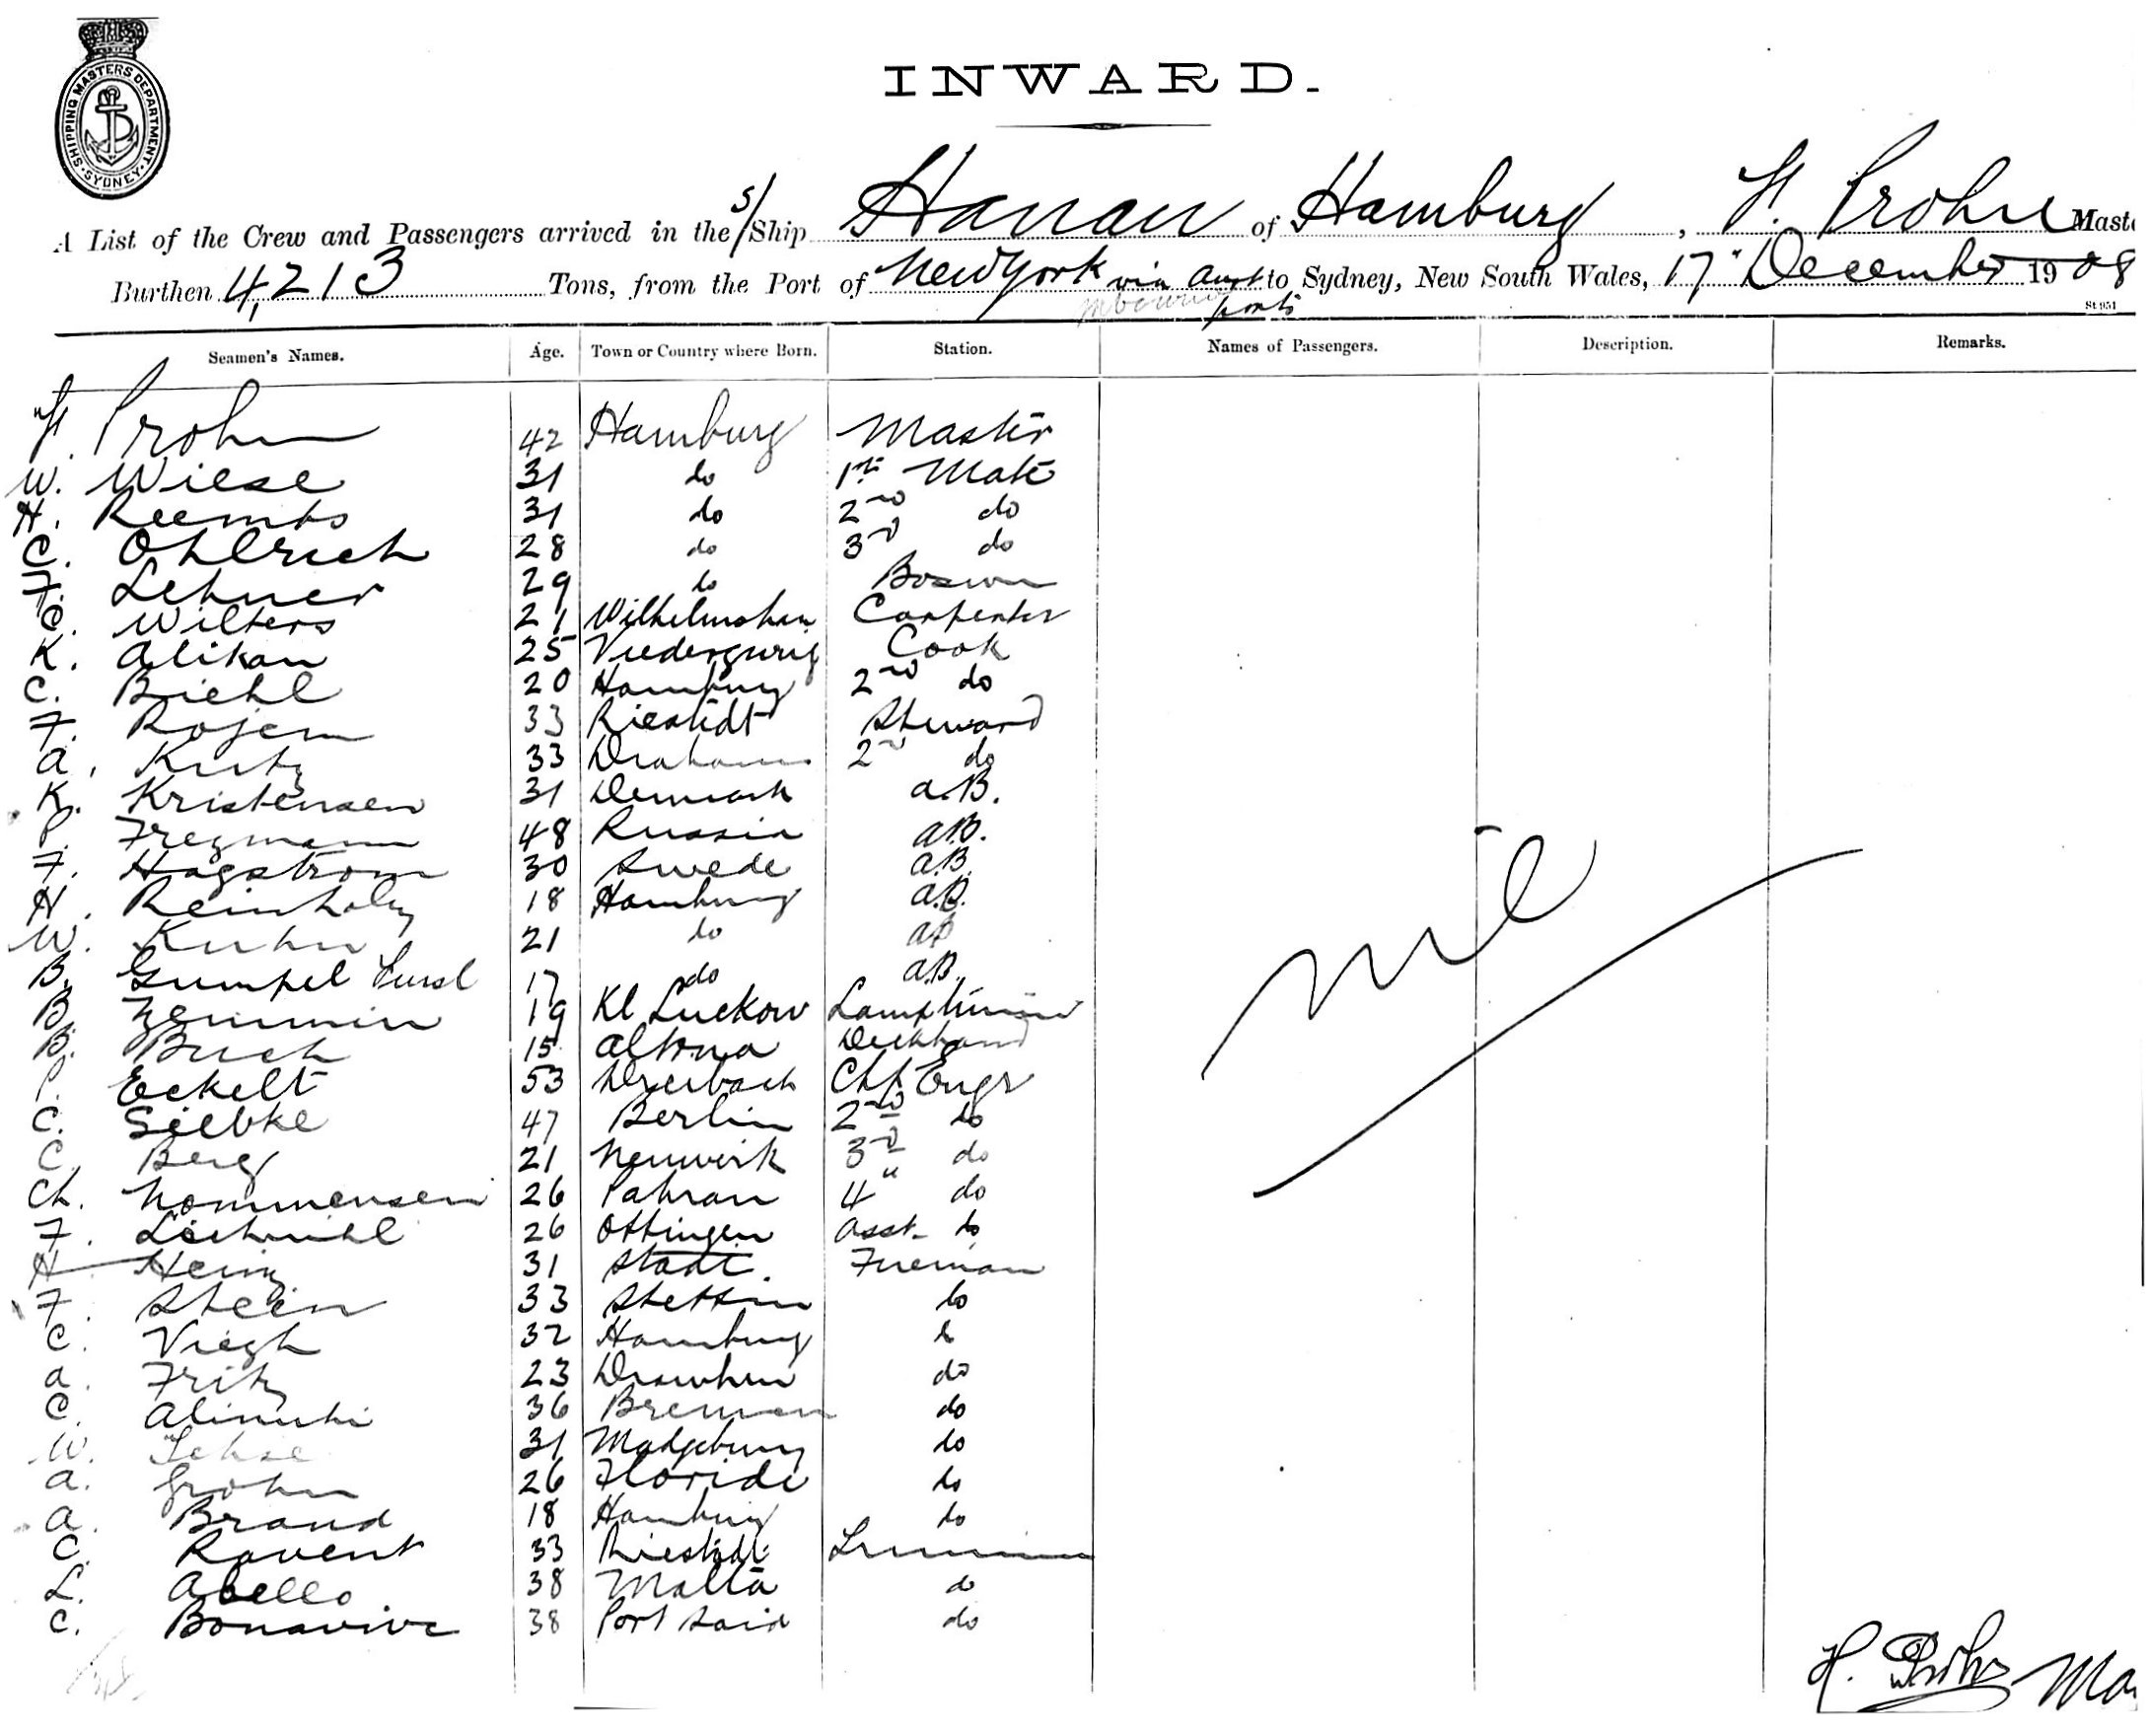 SHIPPING MASTERS DEPARTMENT · SYDNEY ·
INWARD.
A List of the Crew and Passengers arrived in the S/Ship Hanau of Hamburg, H. Prohn Maste
Burthen 4,213 Tons, from the Port of New York via Aust ports to Sydney, New South Wales, 17" December 1908
St 951
Seamen's Names. Age. Town or Country where Born. Station. Names of Passengers. Description. Remarks.
H. Prohn 42 Hamburg Master
W. Wiese 31 do 1st Mate
H. Reemts 31 do 2nd do
C. Ohlrich 28 do 3rd do
F. Lehner 29 do Bosun
C. Wilters 21 Wilhelmshav Carpenter
K. Alikan 25 Cook
C. Biehl 20 Hamburg 2nd do
F. Rojem 33 Riestedt Steward
A. Kutz 33 2nd do
K. Kristensen 31 Denmark A.B.
P. Fregmann 48 Russia A.B.
F. Hagstrom 30 Swede A.B.
H. Reinholz 18 Hamburg A.B.
W. Kuhn 21 do AB
B. Gumpel 17 do A.B.
B. Zemmin 19 Kl Luckow Lamptrimmer
B. Buch 15 Altona Deckhand
P. Eckelt 53 Chf Engr
C. Siebke 47 Berlin 2nd do
C. Berg 21 Neuwerk 3rd do
Ch. Nommensen 26 Pahran 4" do
F. 26 Ottingen Asst do
H Heinz 31 Stade. Fireman
F. Stein 33 Stettin do
C. Viegh 32 Hamburg do
A. Fritz 23 Drawhen do
C. Alinuki 36 Bremen do
W. Lehse 31 Madgeburg do
A. Grohn 26 Floride do
A. Brand 18 Hamburg do
C. Ravent 33 Riestedt Trimmer
L. Abello 38 Malta do
C. Bonavive 38 Port Said do
Nil
H. Prohn Ma